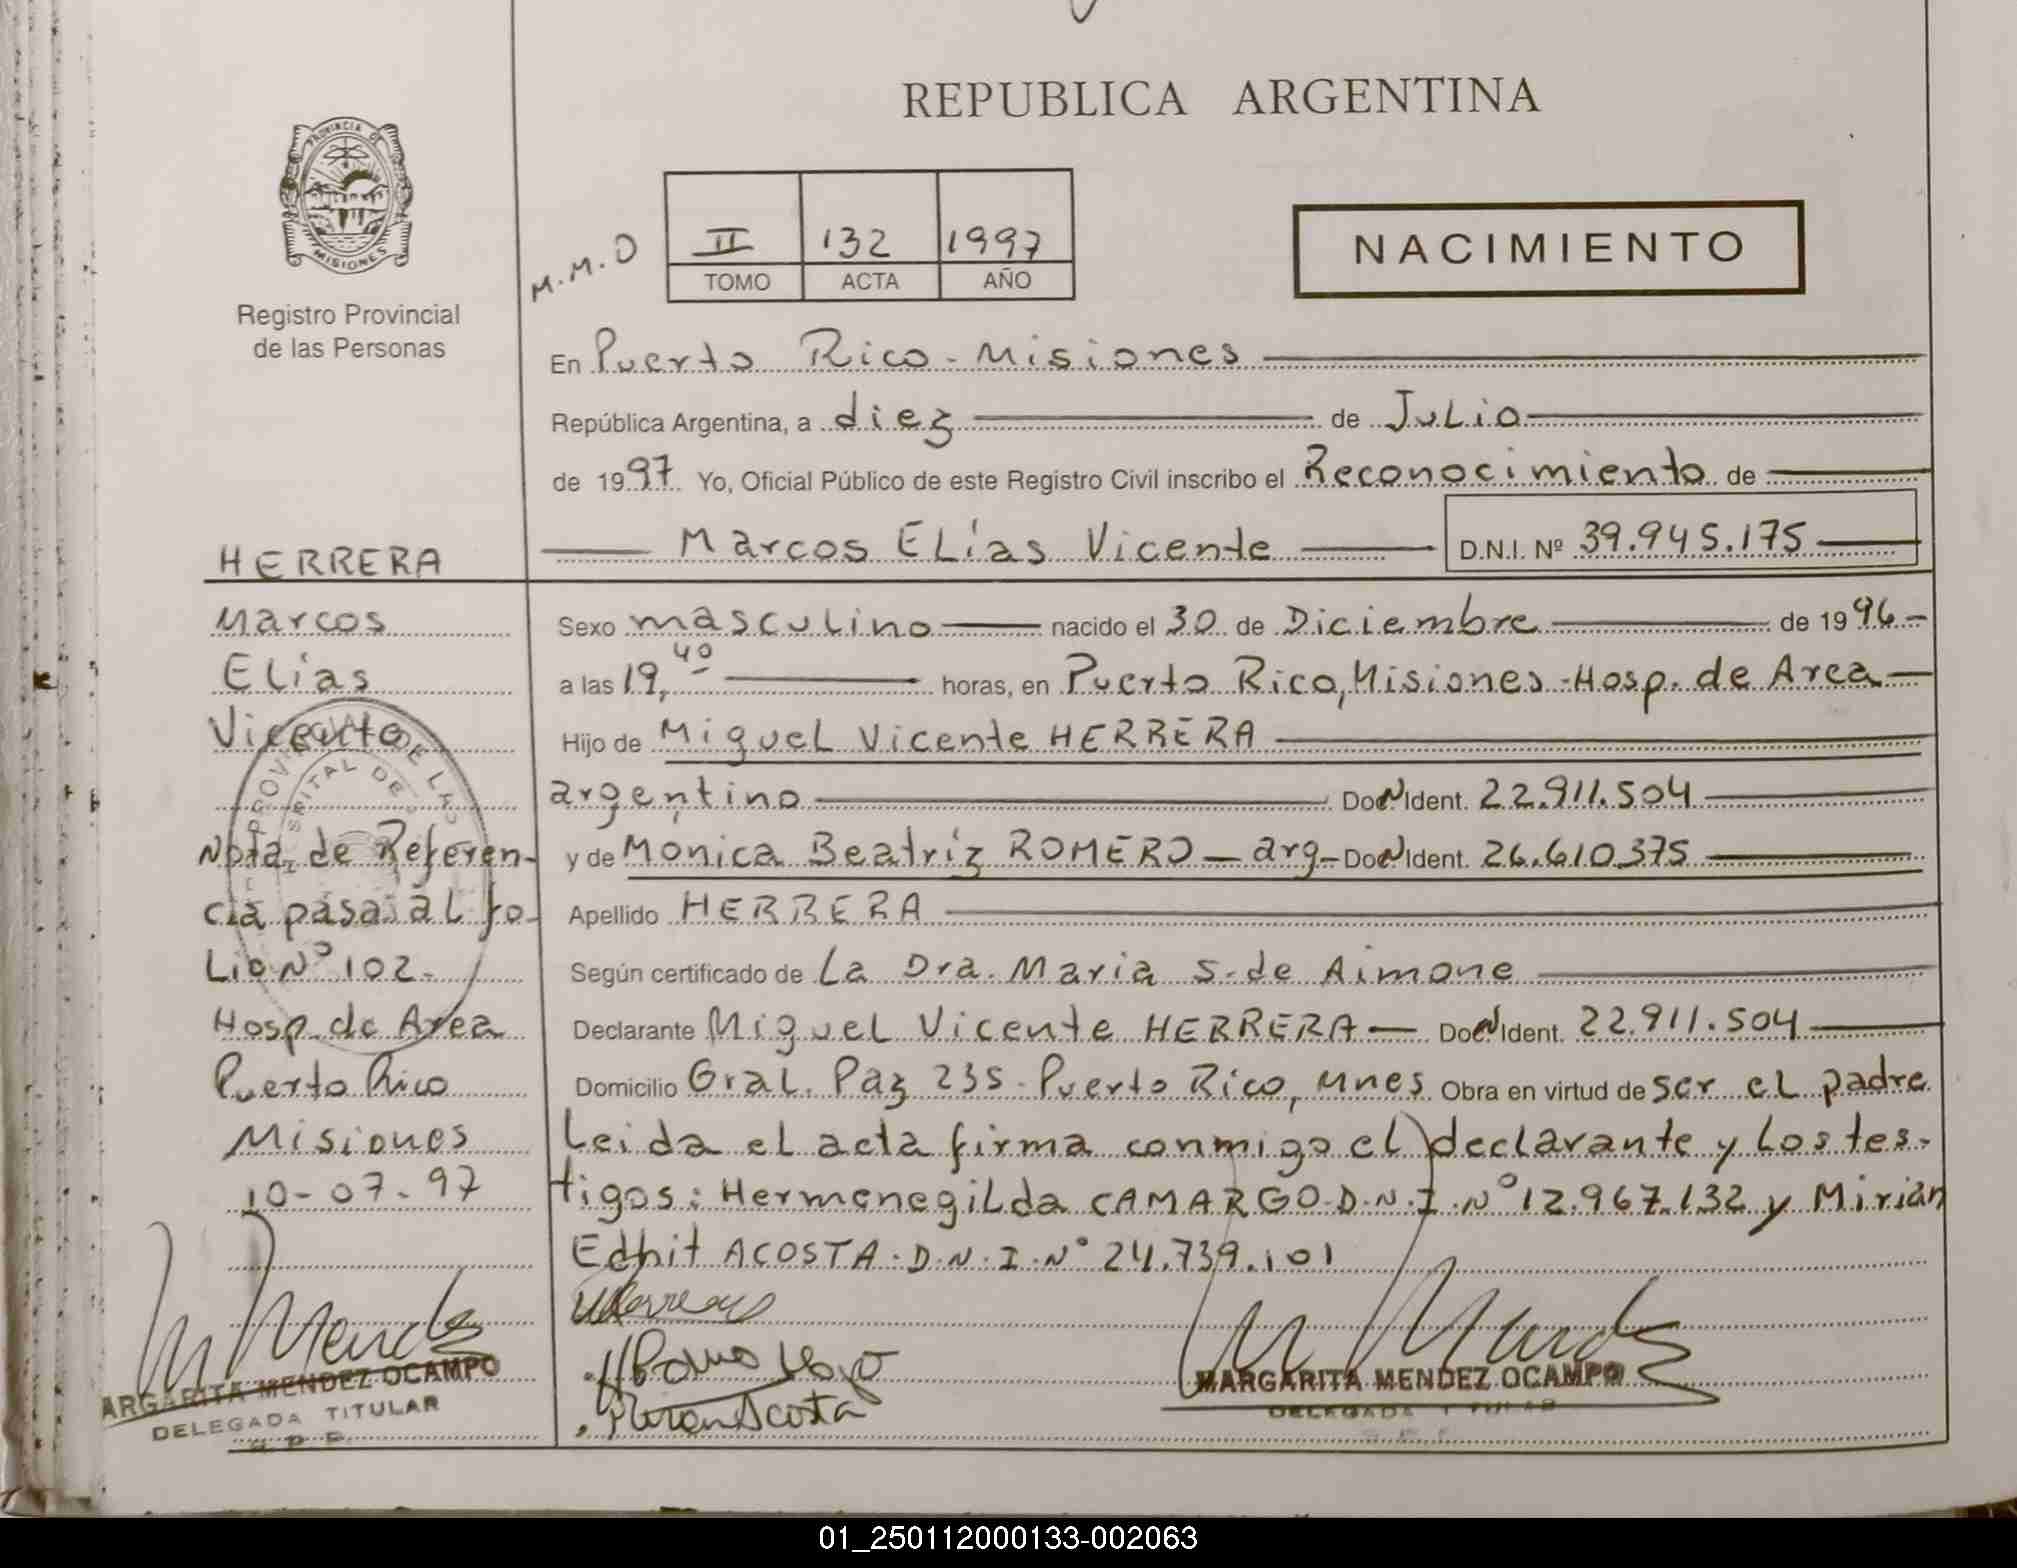 REPUBLICA ARGENTINA
PROVINCIA DE MISIONES
Registro Provincial
de las Personas
M.M.O
II 132 1997
TOMO ACTA AÑO
NACIMIENTO
En Puerto Rico - Misiones
República Argentina, a diez de Julio
de 1997 Yo, Oficial Público de este Registro Civil inscribo el Reconocimiento de
Marcos Elías Vicente D.N.I. Nº 39.945.175
HERRERA
Marcos
Elías
Vicente
Nota de Referen-
cia pasa al fo-
lio Nº 102-
Hosp. de Area
Puerto Rico
Misiones
10-07-97
MARGARITA MENDEZ OCAMPO
DELEGADA TITULAR
Sexo masculino nacido el 30 de Diciembre de 1996-
a las 19,40 horas, en Puerto Rico, Misiones - Hosp. de Area
Hijo de Miguel Vicente HERRERA
argentino DocN Ident. 22.911.504
y de Mónica Beatríz ROMERO - arg- DocN Ident. 26.610.375
Apellido HERRERA
Según certificado de La Dra. Maria S. de Aimone
Declarante Miguel Vicente HERRERA - DocN Ident. 22.911.504
Domicilio Gral. Paz 235 - Puerto Rico, Mnes. Obra en virtud de ser el padre
Leida el acta firma conmigo el declarante y los tes-
tigos: Hermenegilda CAMARGO D.N.I. Nº 12.967.132 y Mirian
Edhit ACOSTA - D.N.I. Nº 24.739.101
MARGARITA MENDEZ OCAMPO
DELEGADA TITULAR
01_250112000133-002063